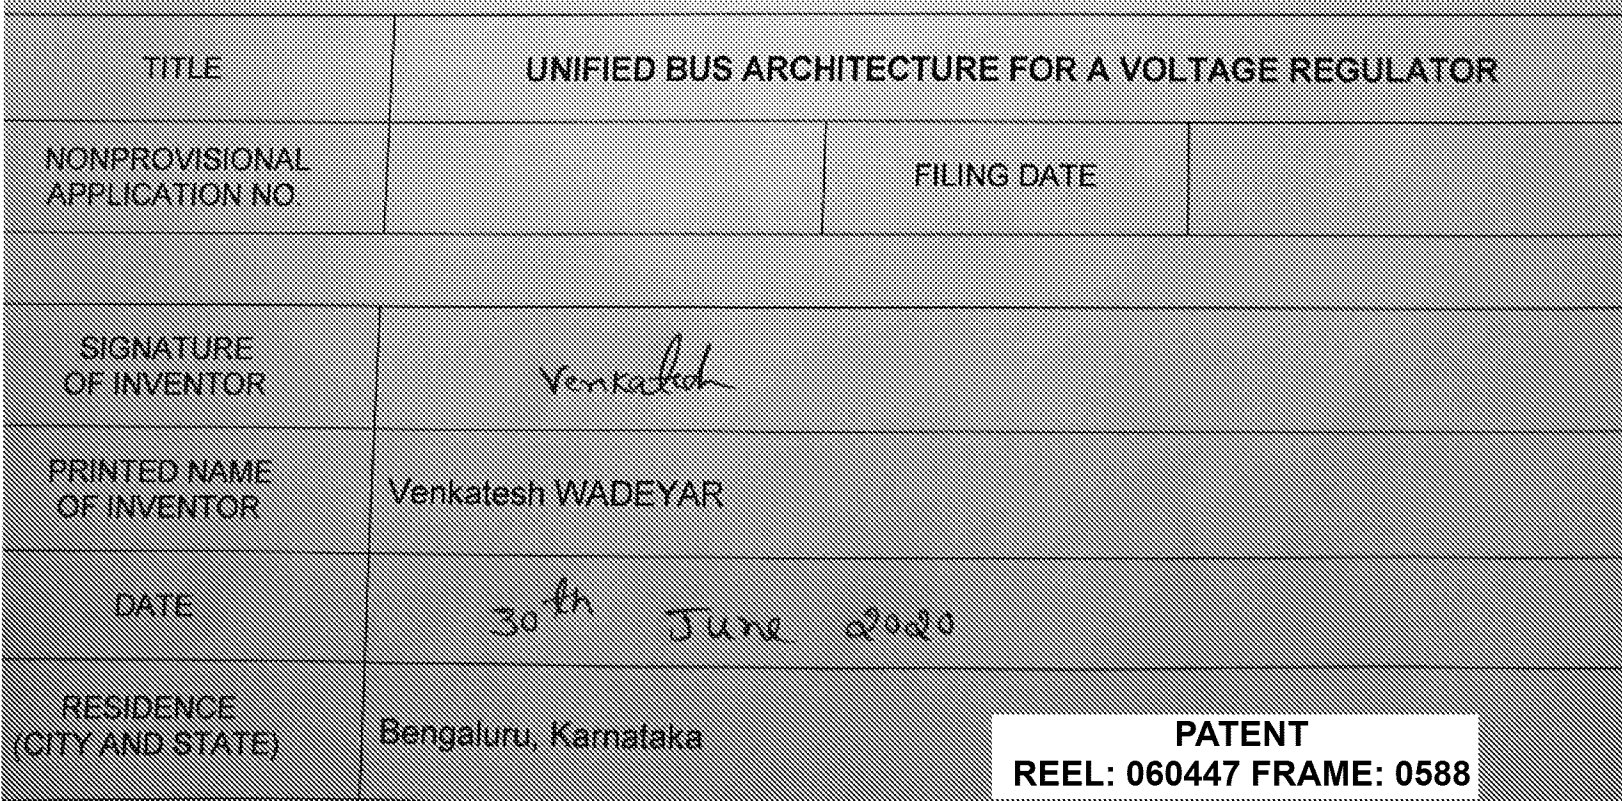 TITLE
UNIFIED BUS ARCHITECTURE FOR A VOLTAGE REGULATOR
NONPROVISIONAL
APPLICATION NO.
FILING DATE
SIGNATURE
OF INVENTOR
Venkatesh
PRINTED NAME
OF INVENTOR
Venkatesh WADEYAR
DATE
30th June 2020
RESIDENCE
(CITY AND STATE)
Bengaluru, Karnataka
PATENT
REEL: 060447 FRAME: 0588